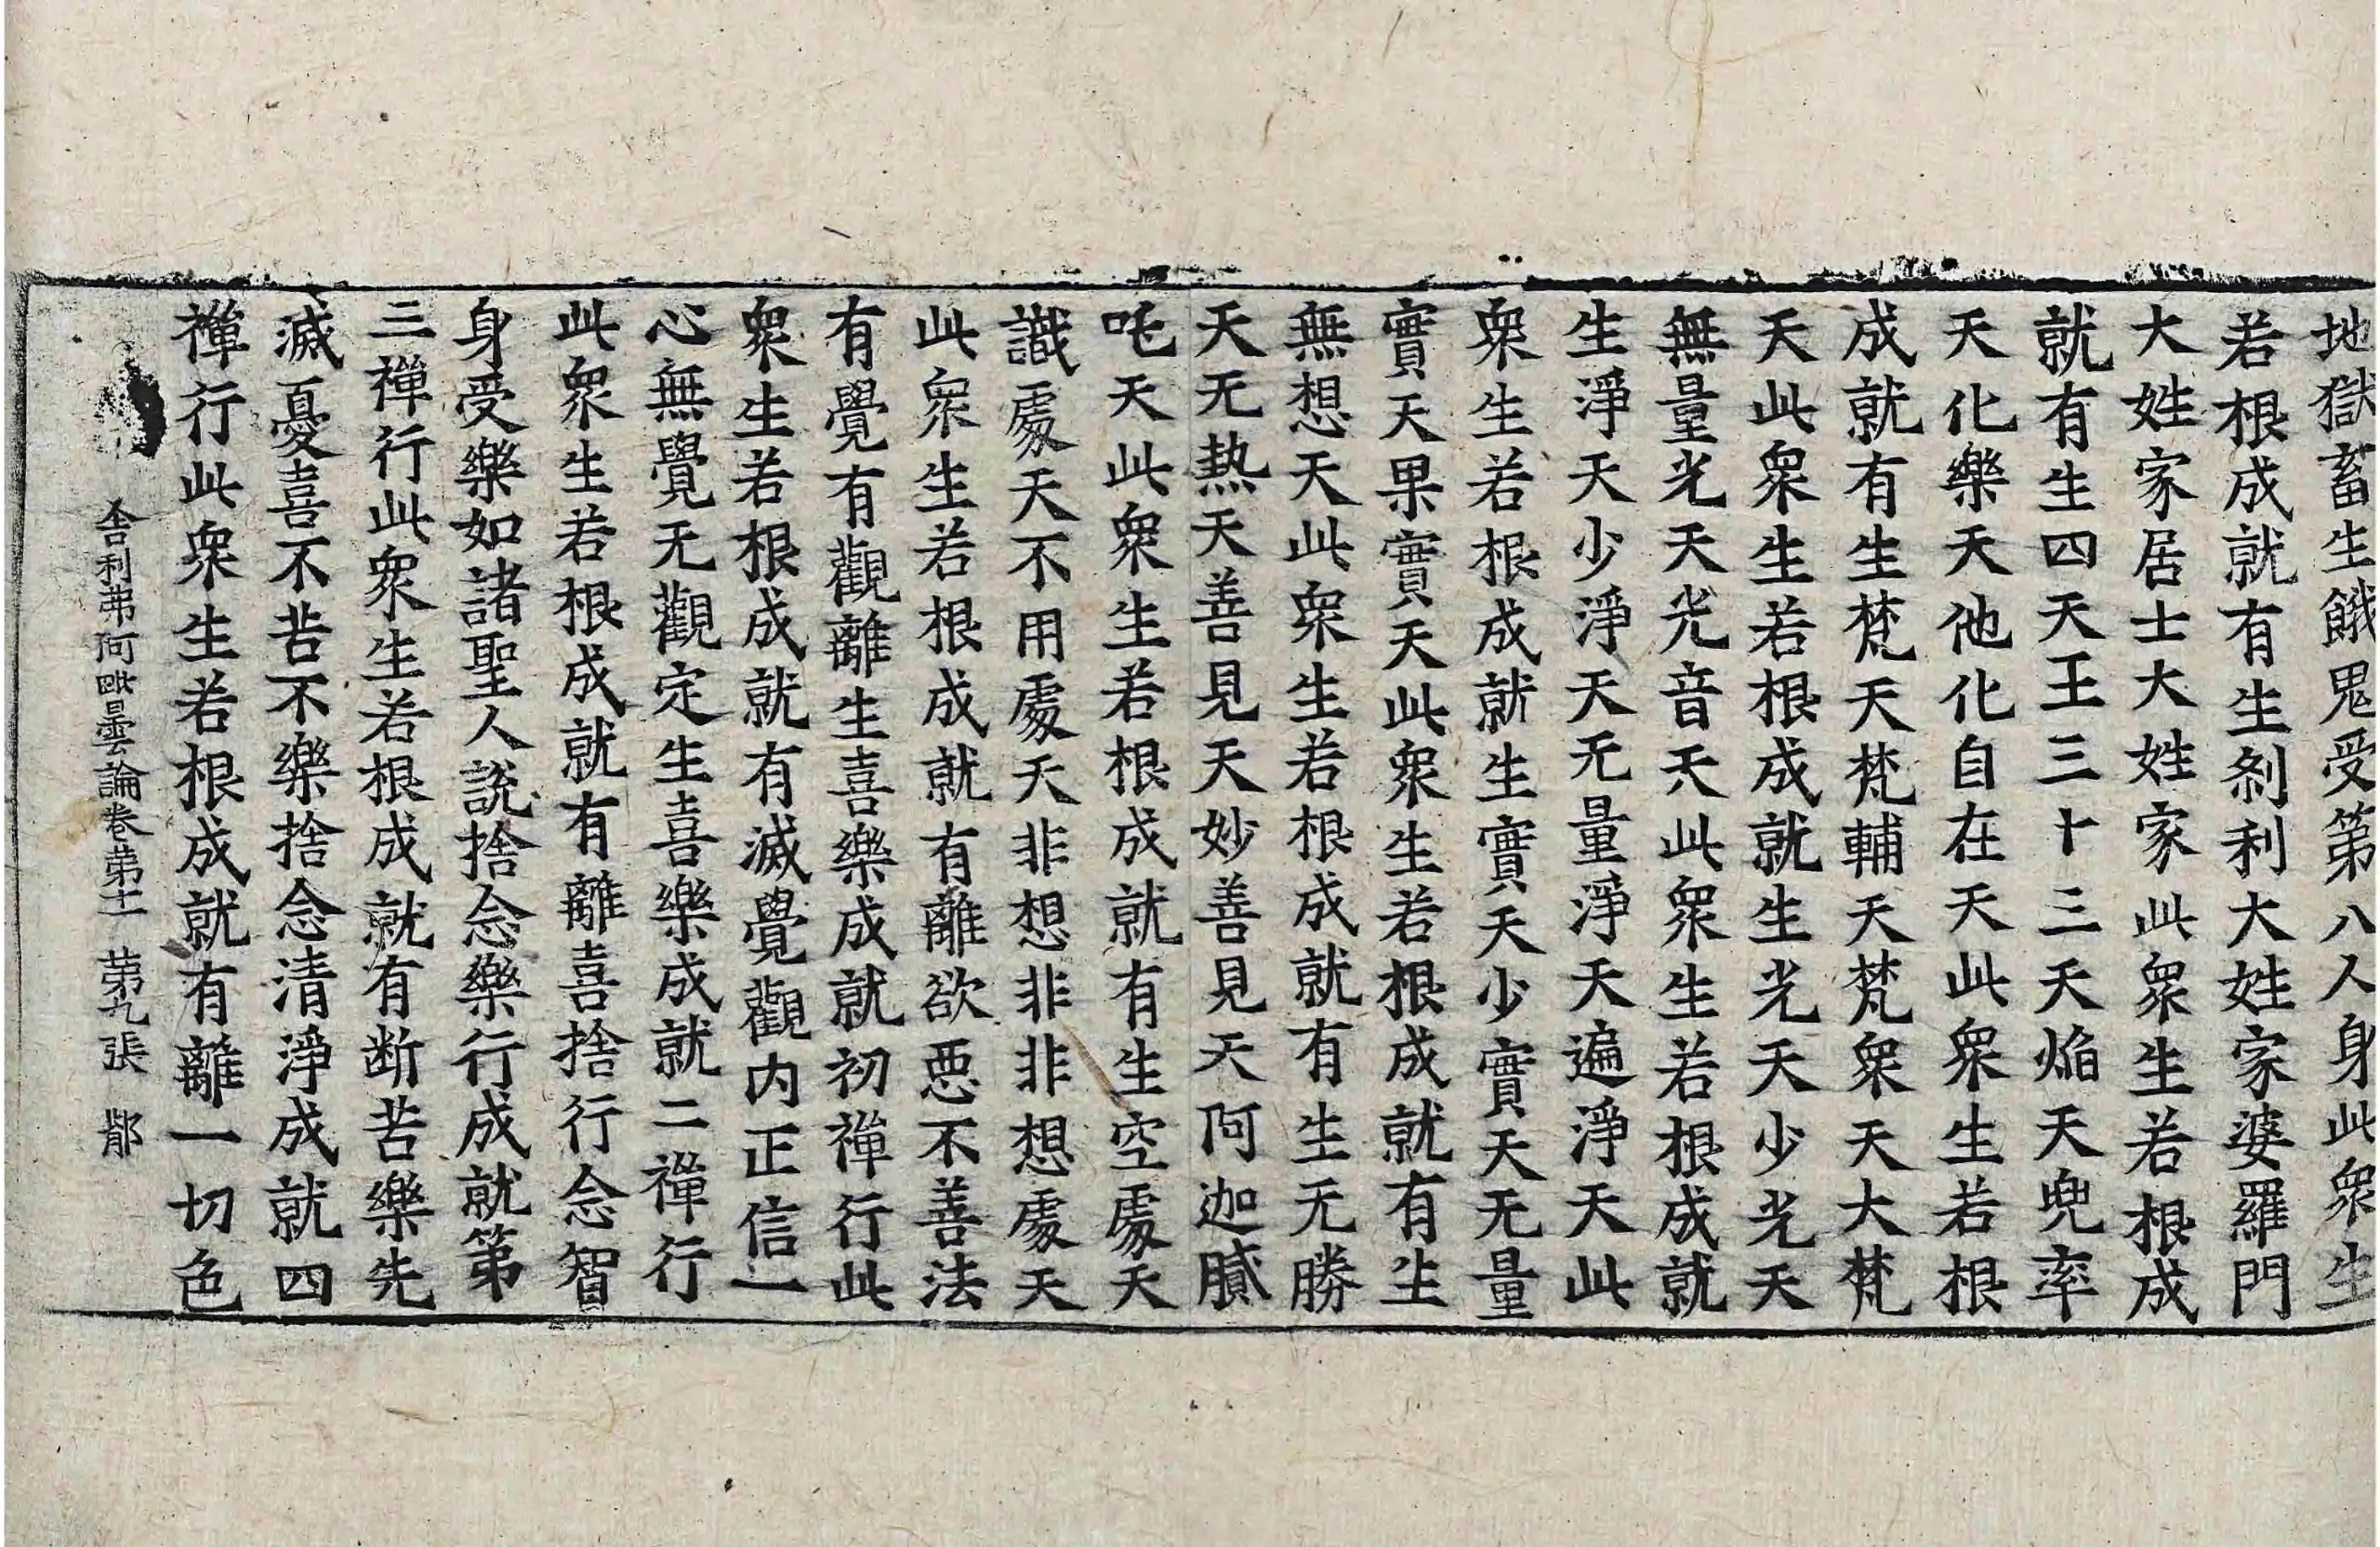 地獄畜生餓鬼受第八人身此衆生
若根成就有生剎利大姓家婆羅門
大姓家居士大姓家此衆生若根成
就有生四天王三十三天焰天兜率
天化樂天他化自在天此衆生若根
成就有生梵天梵輔天梵衆天大梵
天此衆生若根成就生光天少光天
無量光天光音天此衆生若根成就
生淨天少淨天无量淨天遍淨天此
衆生若根成就生實天少實天无量
實天果實天此衆生若根成就有生
無想天此衆生若根成就有生无勝
天无热天善見天妙善見天阿迦膩
吒天此衆生若根成就有生空處天
識處天不用處天非想非非想處天
此衆生若根成就有離欲惡不善法
有覺有觀離生喜樂成就初禪行此
衆生若根成就有滅覺觀内正信一
心無覺无觀定生喜樂成就二禪行
此衆生若根成就有離喜捨行念智
身受樂如諸聖人說捨念樂行成就第
三禪行此衆生若根成就有断苦樂先
滅憂喜不苦不樂捨念清淨成就四
禪行此衆生若根成就有離一切色
舍利弗阿毗曇論卷第十一 第九張 鄁